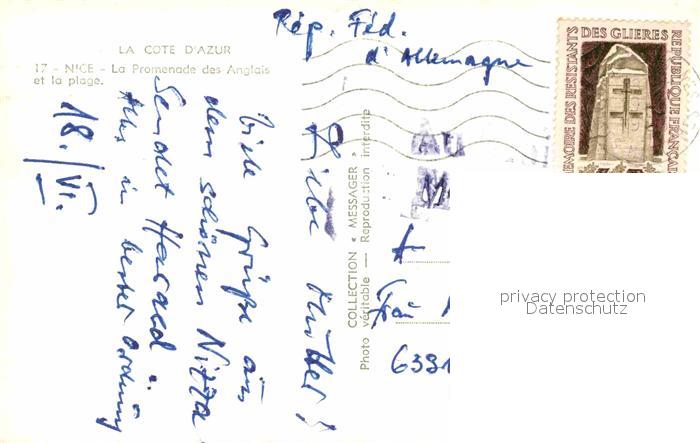 LA COTE D'AZUR
17 - NICE - La Promenade des Anglais
et la plage.
18./VI.
Liebe Mutter!
Viele Grüße aus
dem schönen Nizza
Sendet Harald.
Alles in bester Ordnung
Photo véritable — Reproduction interdite
COLLECTION « MESSAGER »
Rép. Féd.
d'Allemagne
AU
Frau
6391
MEMOIRE DES RESISTANTS DES GLIERES
REPUBLIQUE FRANÇAISE
privacy protection
Datenschutz